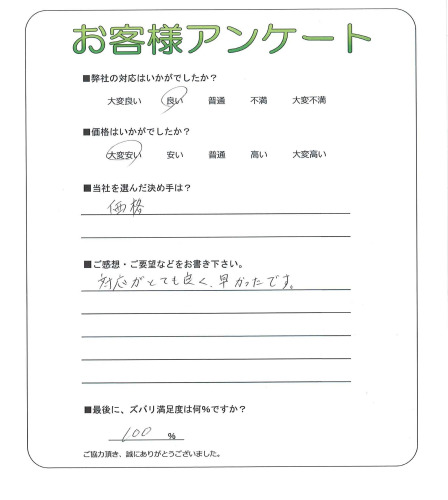 お客様アンケート
■弊社の対応はいかがでしたか？
大変良い 良い 普通 不満 大変不満
■価格はいかがでしたか？
大変安い 安い 普通 高い 大変高い
■当社を選んだ決め手は？
価格
■ご感想・ご要望などをお書き下さい。
対応がとても良く、早かったです。
■最後に、ズバリ満足度は何％ですか？
100 ％
ご協力頂き、誠にありがとうございました。